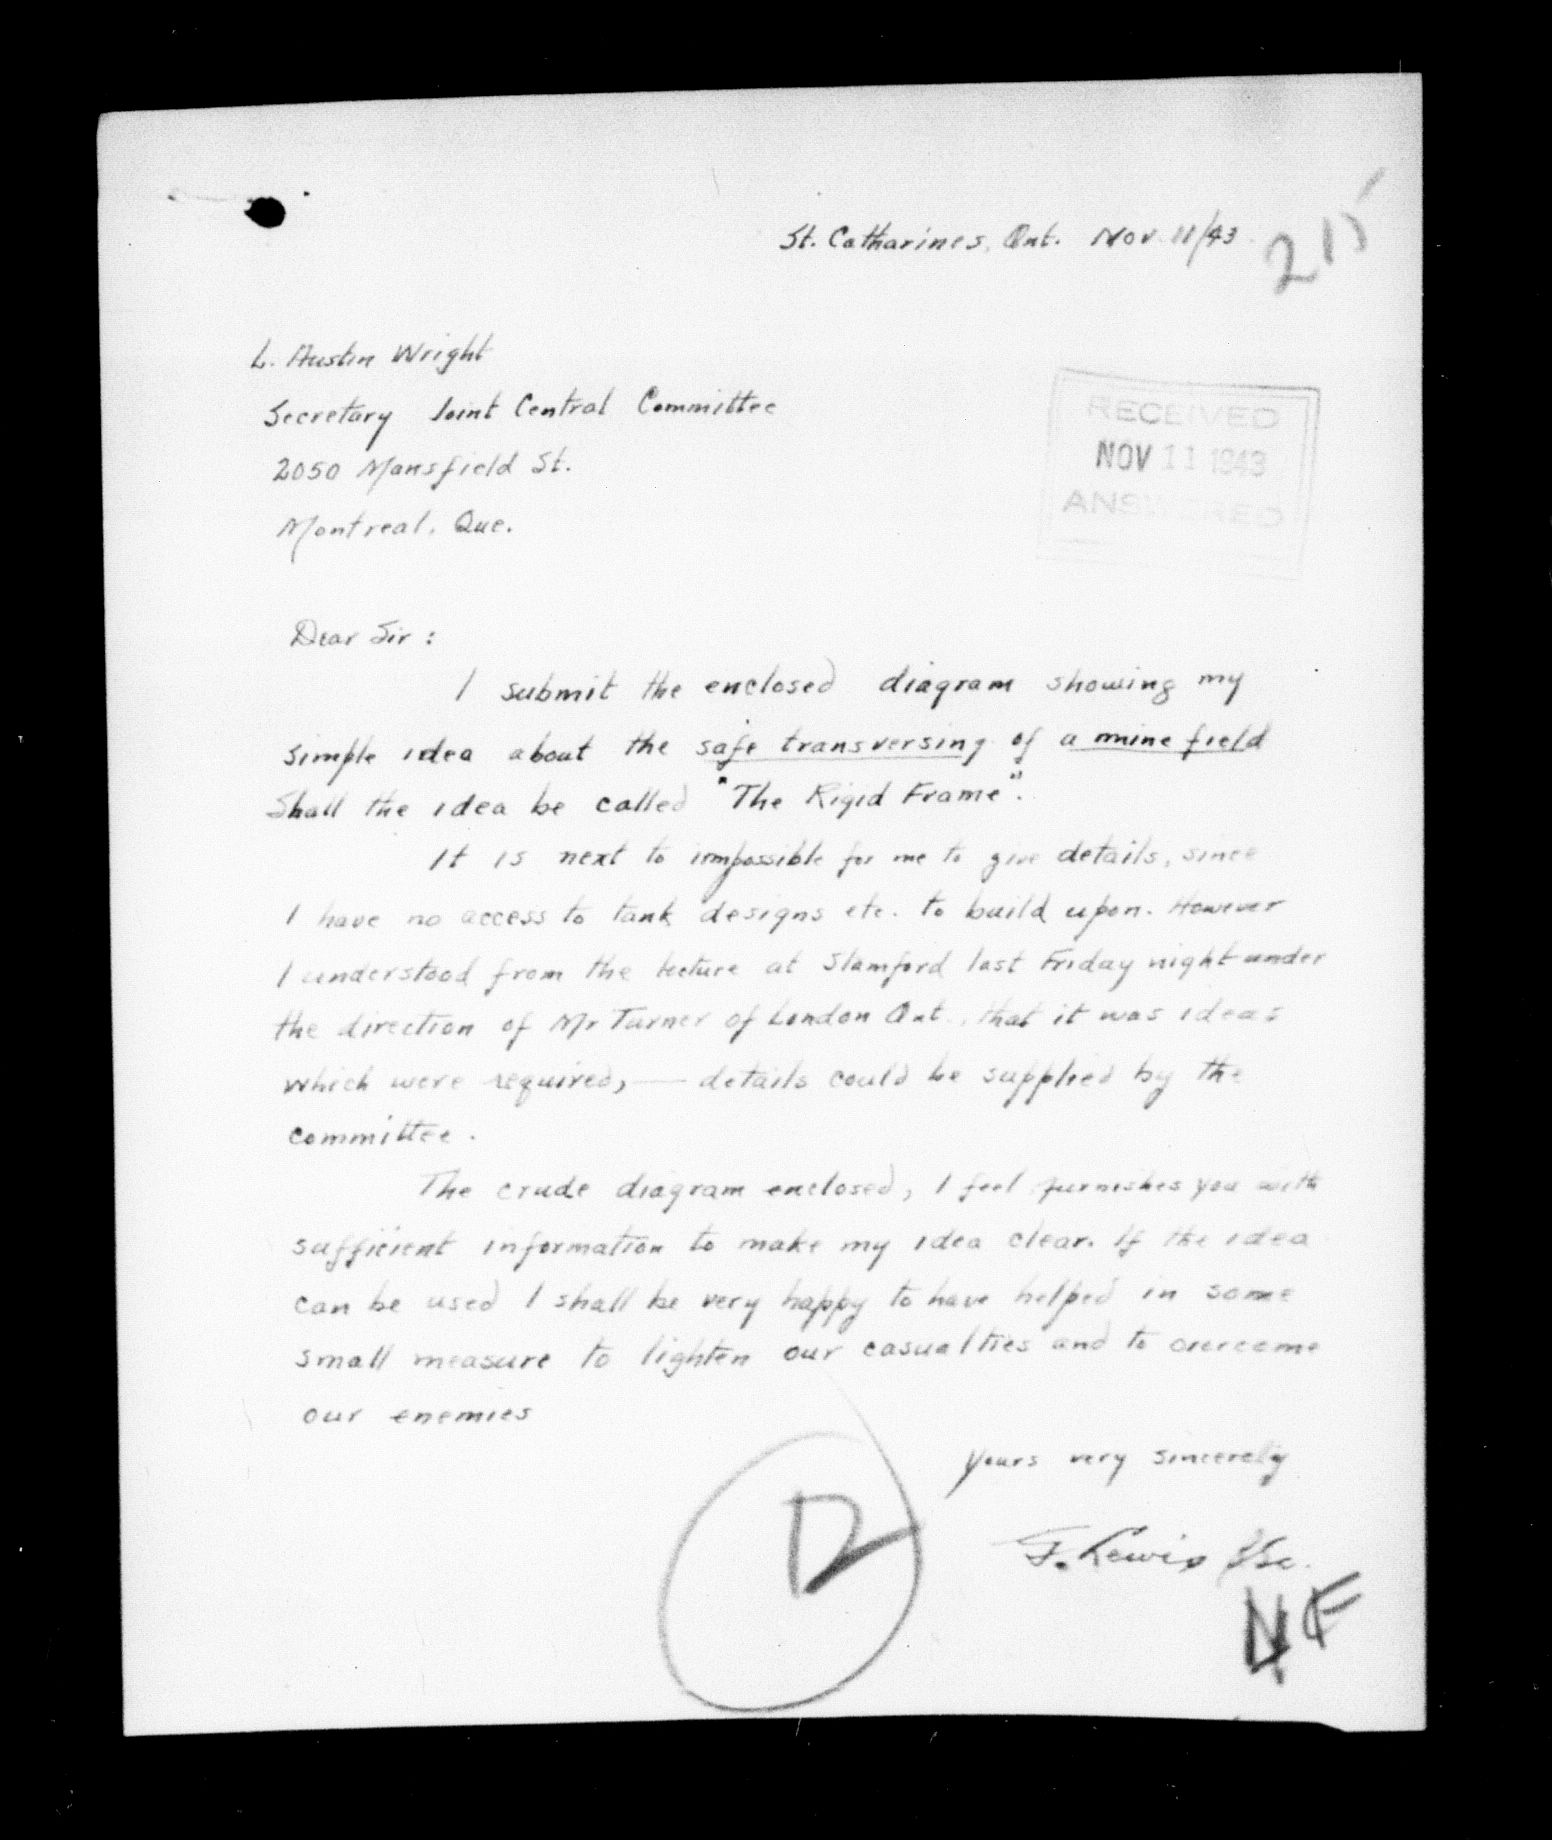 St. Catharines, Ont. Nov. 11/43
215
L. Austin Wright
Secretary Joint Central Committee
2050 Mansfield St.
Montreal, Que.
RECEIVED
NOV 11 1943
ANSWERED
Dear Sir :
I submit the enclosed diagram showing my
simple idea about the safe transversing of a mine field
Shall the idea be called "The Rigid Frame".
It is next to impossible for me to give details, since
I have no access to tank designs etc. to build upon. However
I understood from the lecture at Stamford last Friday night under
the direction of Mr Turner of London Ont., that it was ideas
which were required, — details could be supplied by the
committee.
The crude diagram enclosed, I feel furnishes you with
sufficient information to make my idea clear. If the idea
can be used I shall be very happy to have helped in some
small measure to lighten our casualties and to overcome
our enemies
Yours very sincerely
F. Lewis
D
NF